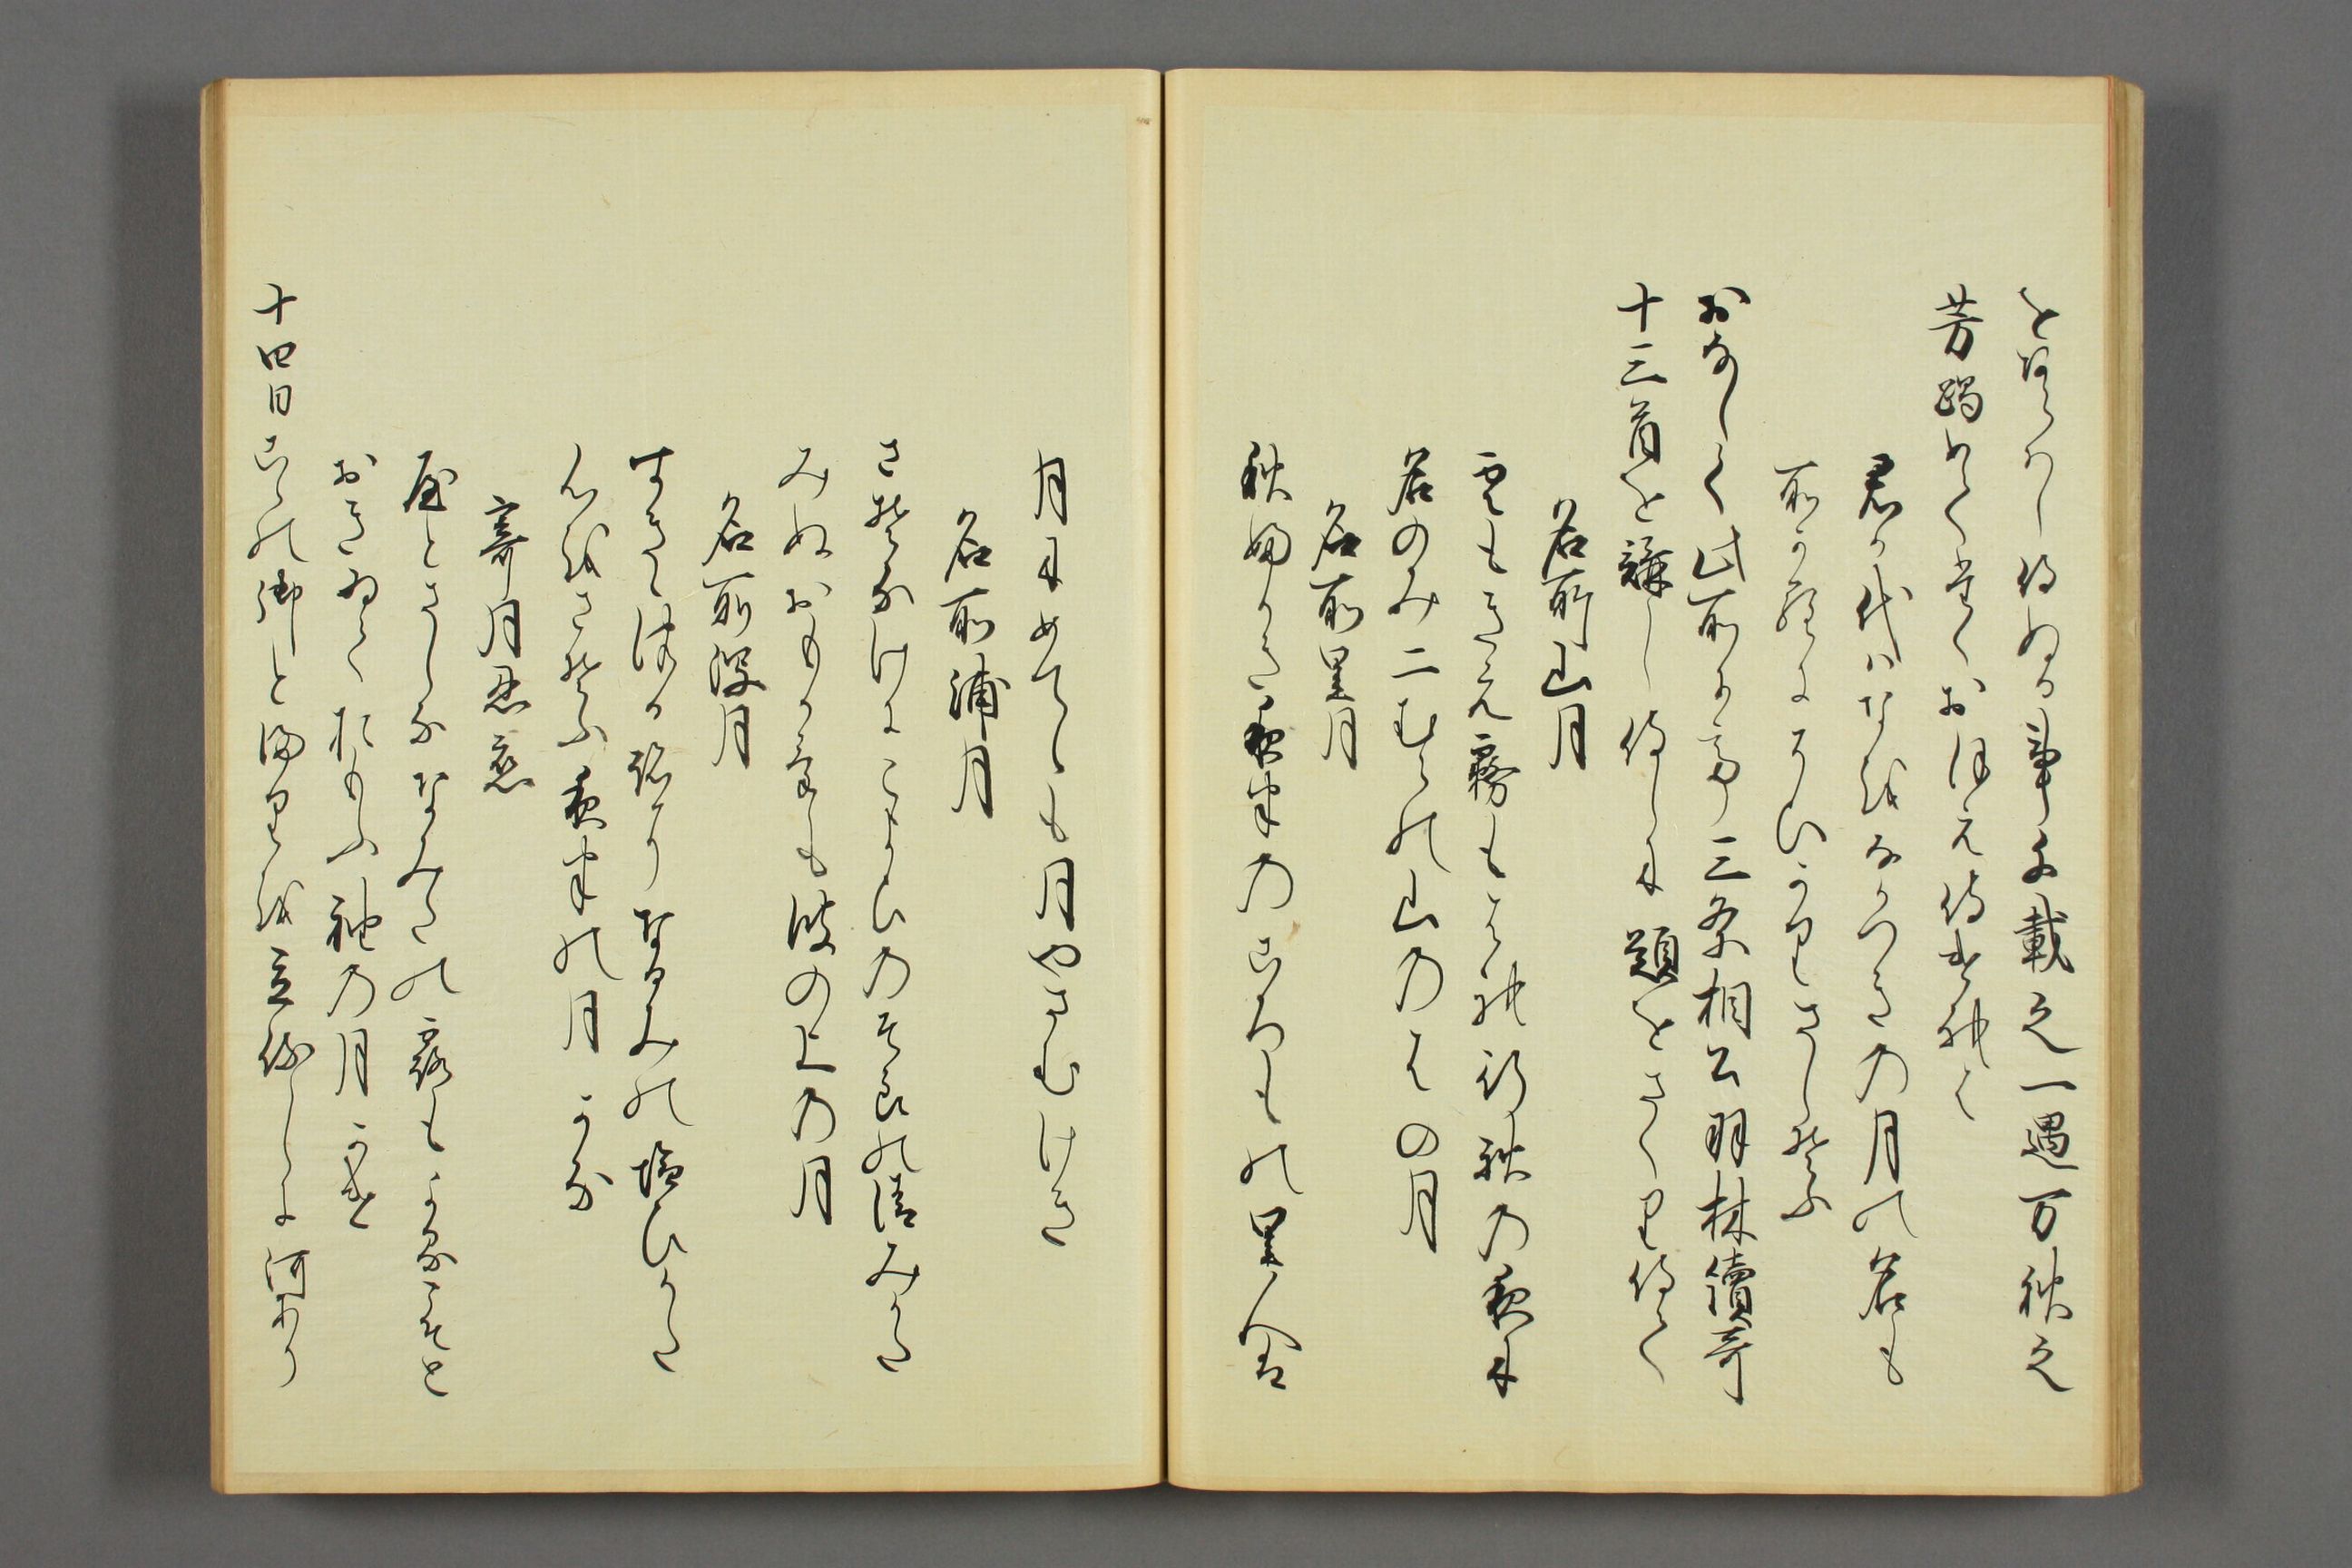 をなかめ侍ぬる事千載之一遇万秋之
芳躅めてたくおほえ侍けれは
君か代はなをなかつきの月の名も
所からにそひかりさしそふ
おなしく此所にて三条相公羽林續哥
十三首を講し侍しに題をさくり侍て
名所山月
雲もきえ霧もはれ行秋の夜に
名のみ二むらの山のはの月
名所里月
秋ふかき夜半のころもの里人
月にめてゝも月やさむけき
名所浦月
さそなけにこよひのそらの清みかた
みぬおもかけも波の上の月
名所月
すきつる跡になるみの塩ひかた
心をさそふ夜半の月かな
寄月忍恋
やとさしななみたの露もかゝるそと
おきゐてしのふ袖の月かけ
十四日こゝの御とまりを立侍しに河あり